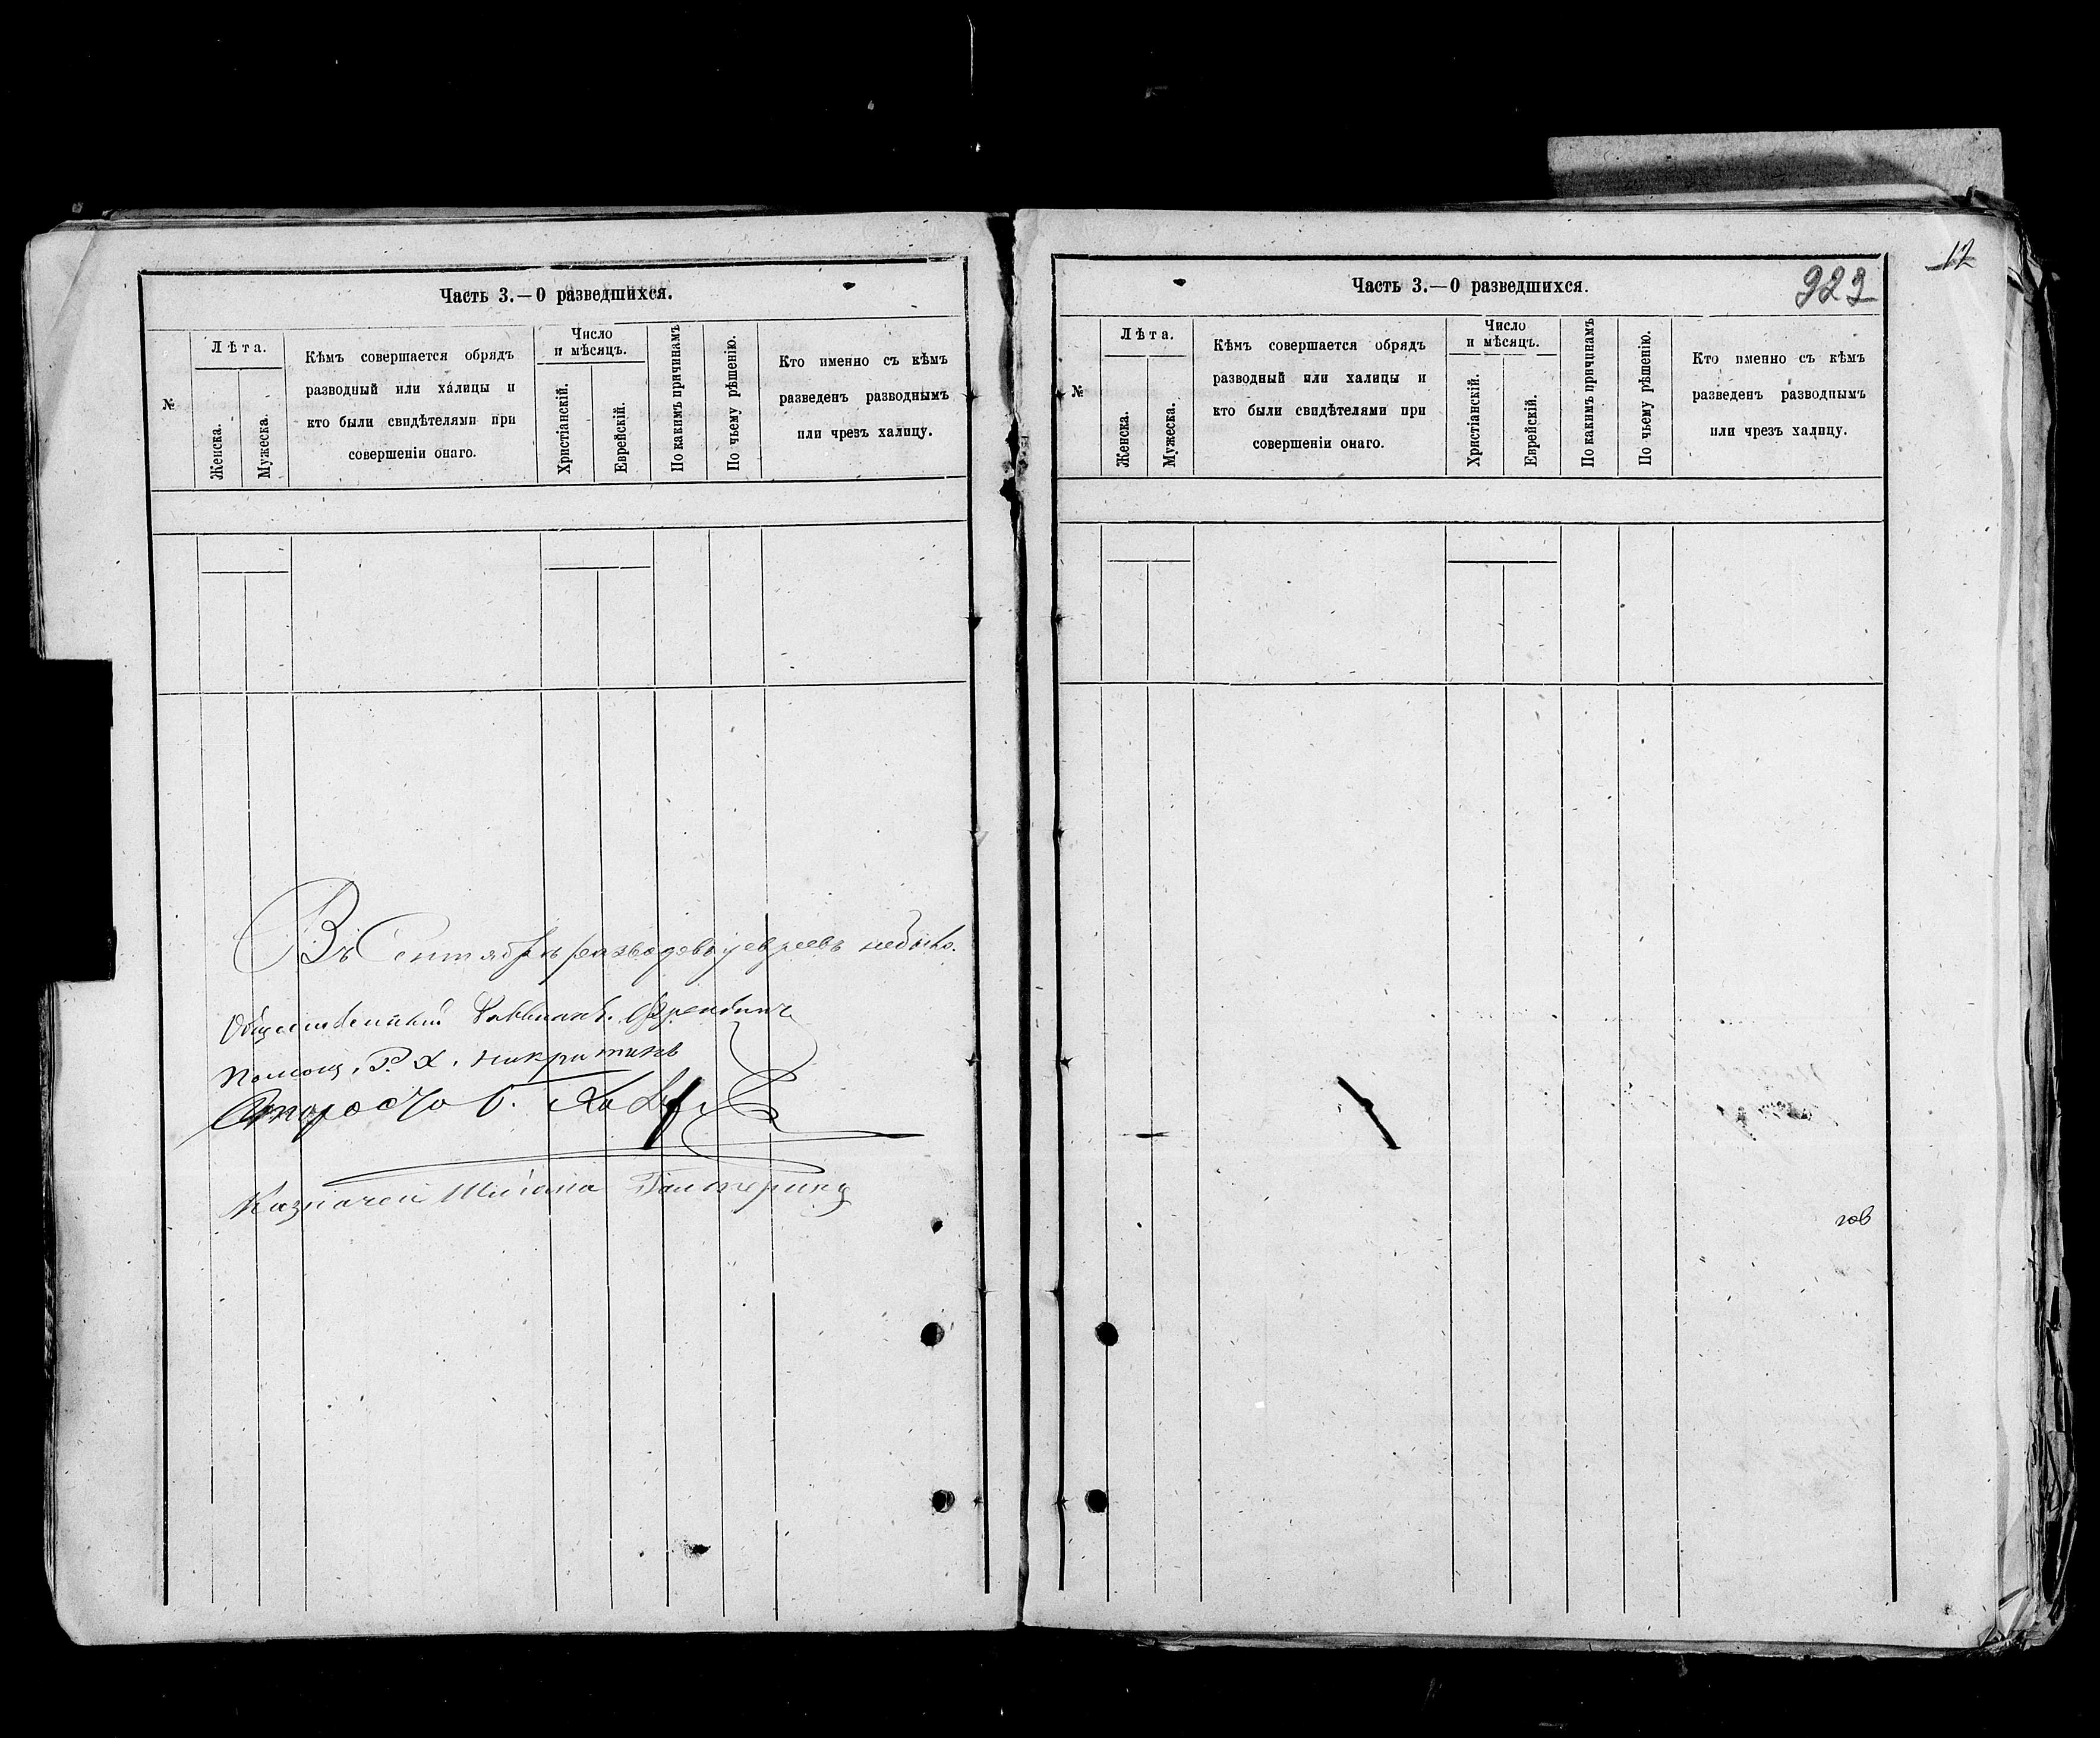 Часть 3.—О разведшихся.
№
Лѣта.
Женска.
Мужеска.
Кѣмъ совершается обрядъ
разводный или халицы и
кто были свидѣтелями при
совершеніи онаго.
Число
и мѣсяцъ.
Христіанскій.
Еврейскій.
По какимъ причинамъ
По чьему рѣшенію.
Кто именно съ кѣмъ
разведенъ разводнымъ
или чрезъ халицу.
Въ Сентябрѣ разводовъ у евреевъ небыло.
Общественный Раввинъ
Помощ. Р. Х. Никритинъ
Староста Б.
Казначей
12
923
Часть 3.—О разведшихся.
№
Лѣта.
Женска.
Мужеска.
Кѣмъ совершается обрядъ
разводный или халицы и
кто были свидѣтелями при
совершеніи онаго.
Число
и мѣсяцъ.
Христіанскій.
Еврейскій.
По какимъ причинамъ
По чьему рѣшенію.
Кто именно съ кѣмъ
разведенъ разводнымъ
или чрезъ халицу.
гов